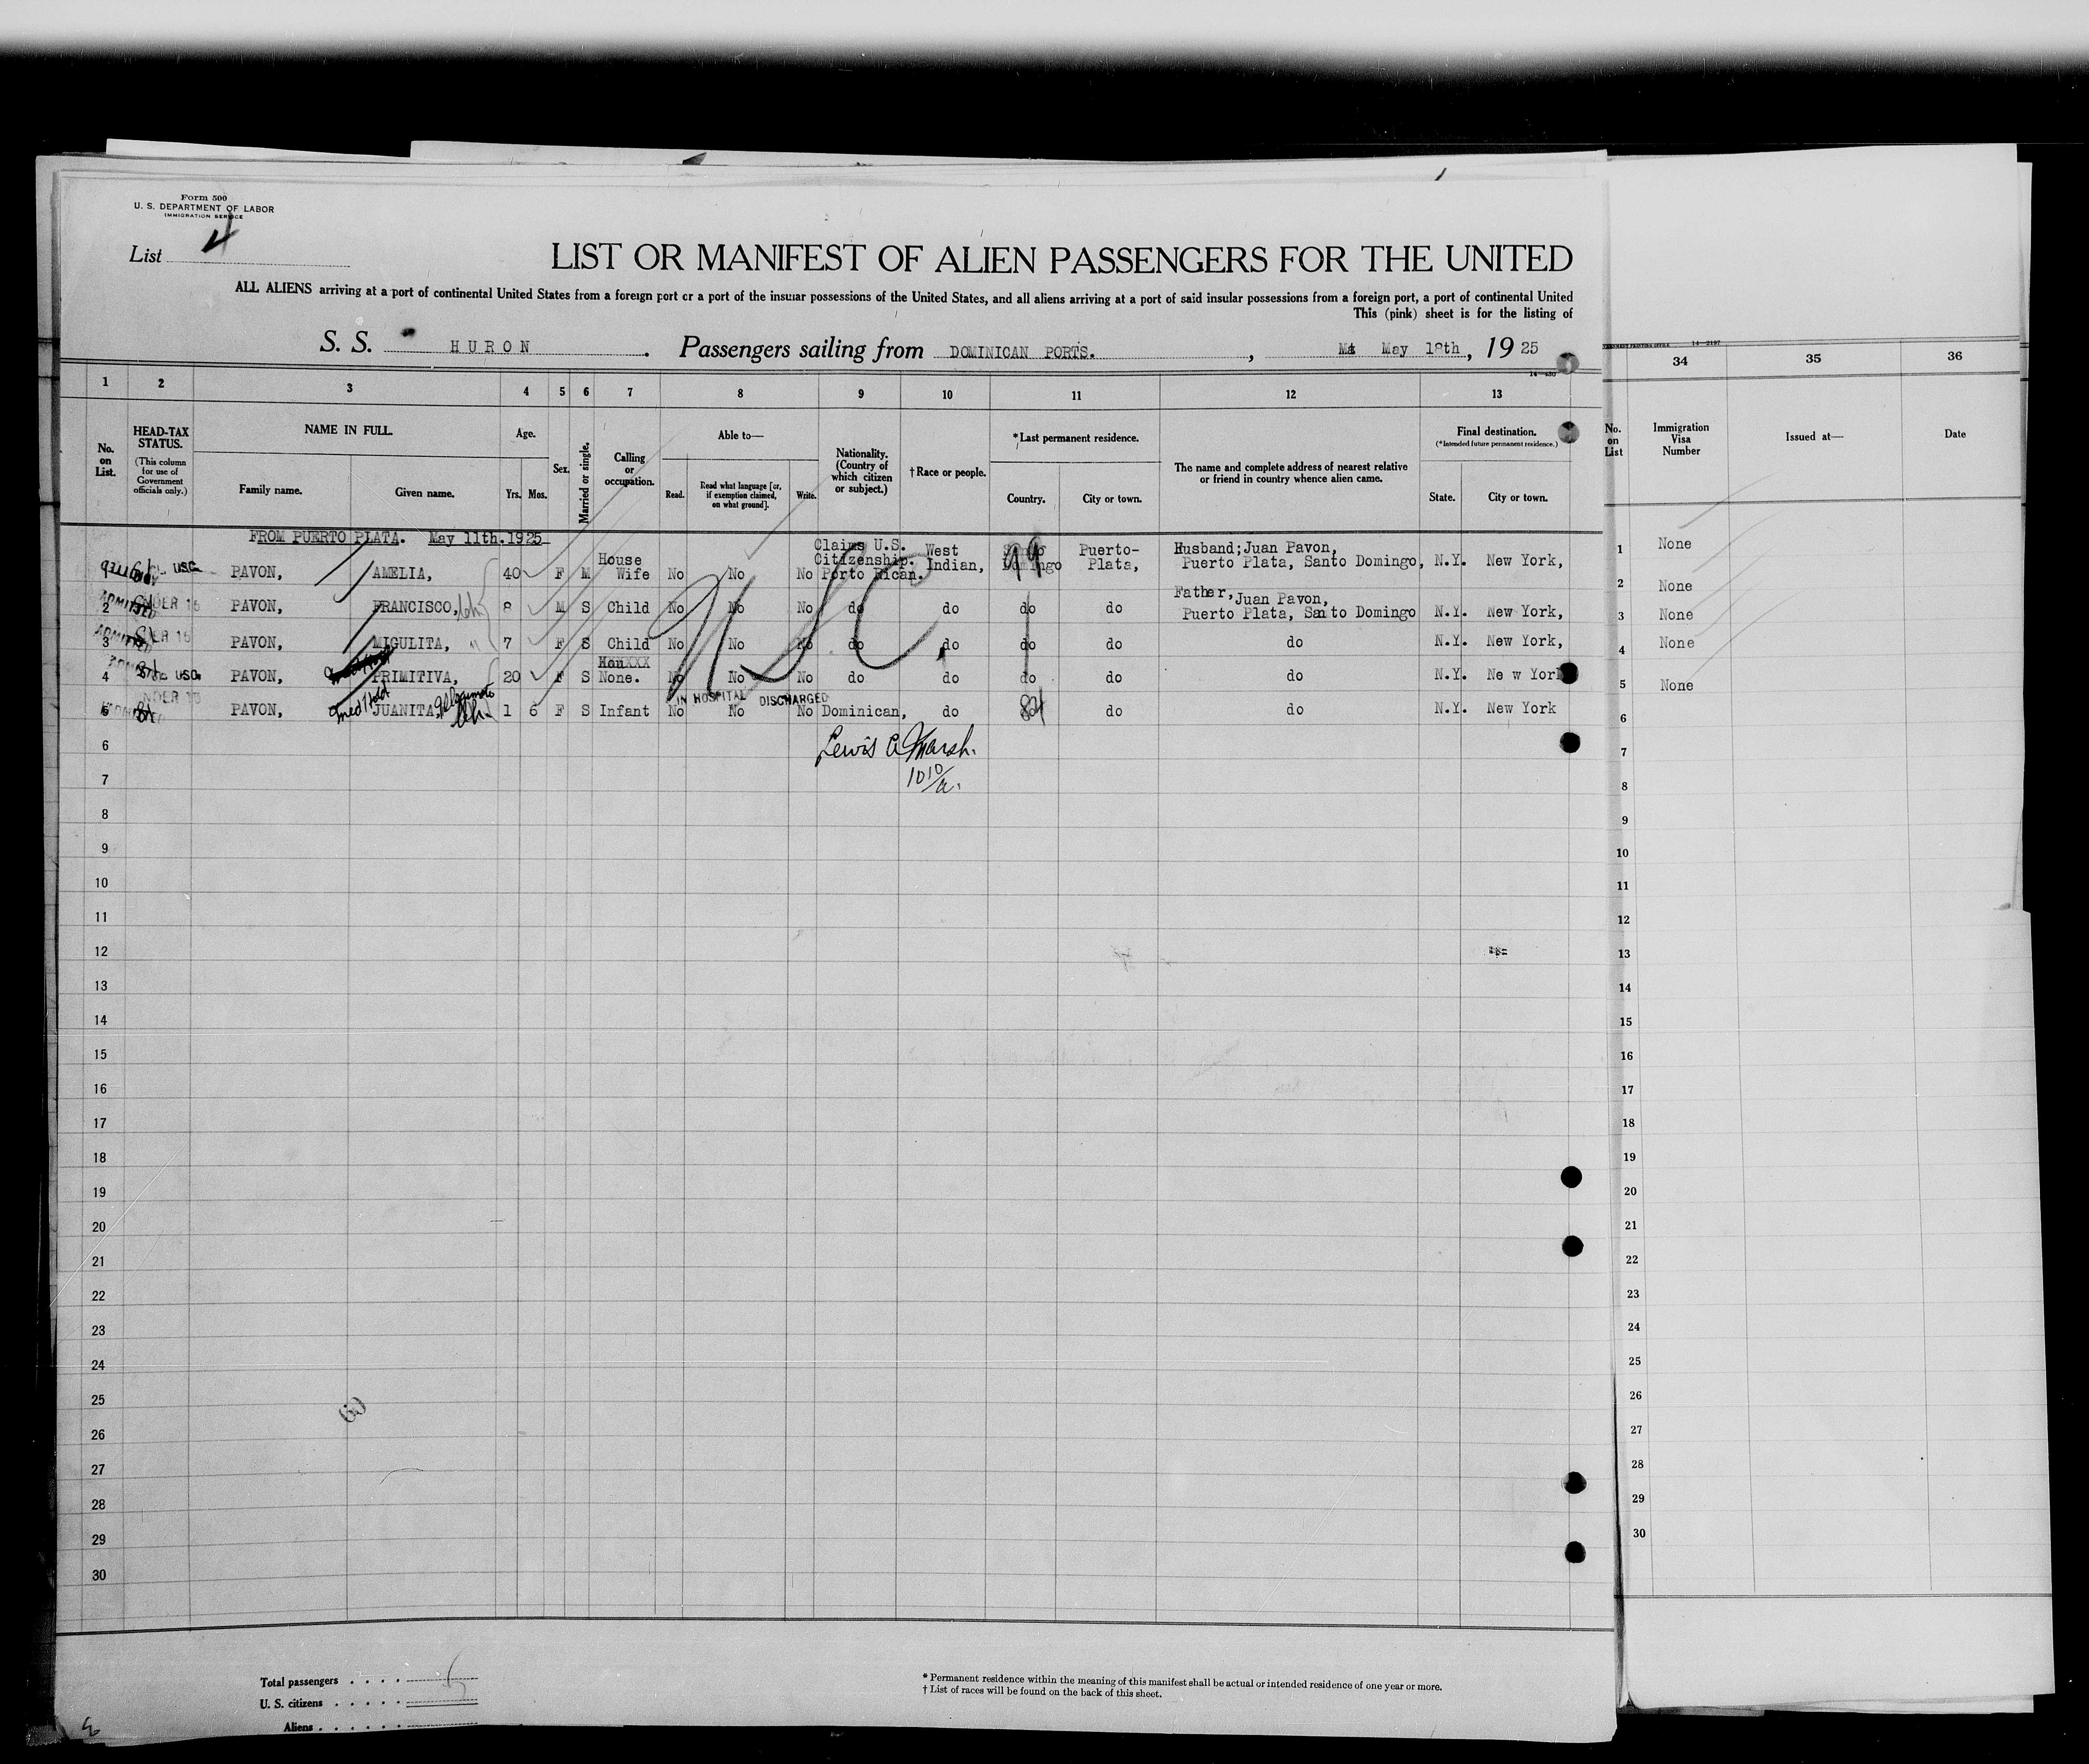 Form 500
U. S. DEPARTMENT OF LABOR
IMMIGRATION SERVICE
List 4
LIST OR MANIFEST OF ALIEN PASSENGERS FOR THE UNITED
ALL ALIENS arriving at a port of continental United States from a foreign port or a port of the insular possessions of the United States, and all aliens arriving at a port of said insular possessions from a foreign port, a port of continental United
This (pink) sheet is for the listing of
S. S. HURON. Passengers sailing from DOMINICAN PORTS. , May 18th, 1925
1 2 3 4 5 6 7 8 9 10 11 12 13
No. on List.
HEAD-TAX STATUS.
(This column for use of Government officials only.)
NAME IN FULL.
Family name. Given name.
Age.
Yrs. Mos.
Sex.
Married or single.
Calling or occupation.
Able to—
Read. Read what language [or, if exemption claimed, on what ground]. Write.
Nationality. (Country of which citizen or subject.)
†Race or people.
*Last permanent residence.
Country. City or town.
The name and complete address of nearest relative or friend in country whence alien came.
Final destination.
(*Intended future permanent residence.)
State. City or town.
FROM PUERTO PLATA. May 11th.1925
1 USC PAVON, AMELIA, 40 F M House Wife No No No Claims U.S. Citizenship. Porto Rican. West Indian, Santo Domingo Puerto-Plata, Husband;Juan Pavon, Puerto Plata, Santo Domingo, N.Y. New York,
2 ADMITTED UNDER 16 PAVON, FRANCISCO, 8 M S Child No No No do do do do Father, Juan Pavon, Puerto Plata, Santo Domingo N.Y. New York,
3 ADMITTED UNDER 16 PAVON, MIGULITA, 7 F S Child No No No do do do do do N.Y. New York,
4 USC PAVON, PRIMITIVA, 20 F S None. No No No do do do do do N.Y. Ne w York
IN HOSPITAL DISCHARGED
5 PAVON, Med Hold JUANITA, 1 6 F S Infant No No No Dominican, do 84 do do N.Y. New York
USC.
Lewis A Marsh.
6
7
8
9
10
11
12
13
14
15
16
17
18
19
20
21
22
23
24
25
26
27
28
29
30
60
Total passengers . . . . 5
U. S. citizens . . . . .
Aliens . . . . . .
* Permanent residence within the meaning of this manifest shall be actual or intended residence of one year or more.
† List of races will be found on the back of this sheet.
34 35 36
No. on List
Immigration Visa Number
Issued at—
Date
1 None
2 None
3 None
4 None
5 None
6
7
8
9
10
11
12
13
14
15
16
17
18
19
20
21
22
23
24
25
26
27
28
29
30